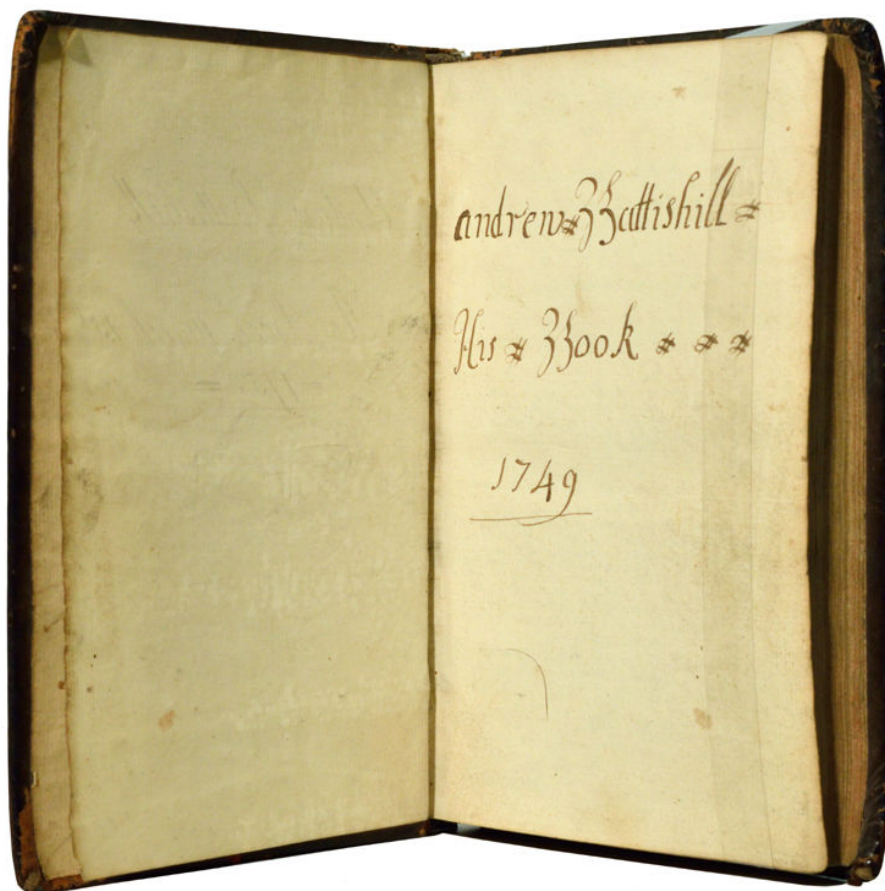 andrew Battishill
His Book
1749